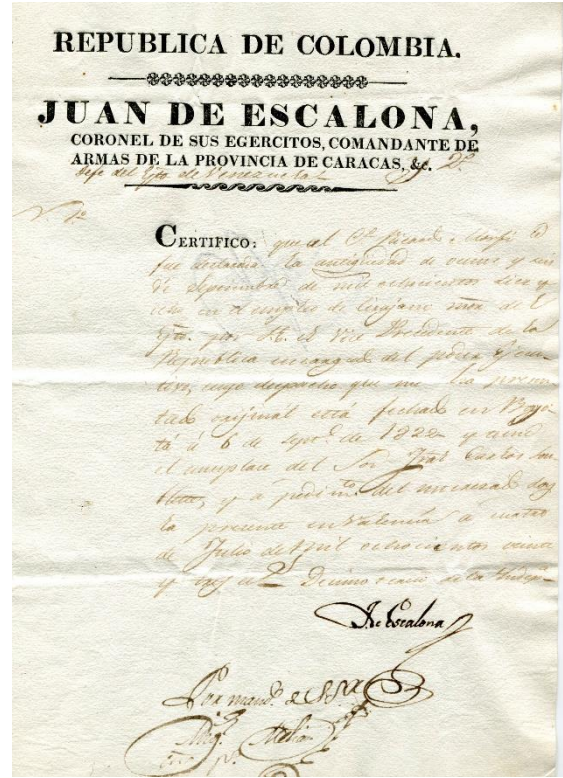 REPUBLICA DE COLOMBIA.
JUAN DE ESCALONA,
CORONEL DE SUS EGERCITOS, COMANDANTE DE
ARMAS DE LA PROVINCIA DE CARACAS, &c.
Gefe del Eto. de Venezuela
CERTIFICO: que al Cno. Ricardo Murfi
fue declarada la antigüedad de veinte y un
de Septiembre de mil ochocientos diez y
ocho en el empleo de Cirujano mor. de E
por S.E. el Vice Presidente de la
Republica encargado del poder Ejecu-
tivo, cuyo despacho que me ha presen
tado orijinal está fechado en Bogo
tá á 6 de Sepre. de 1822 y tiene
el cumplase del Sor. Gral. Carlos Sou
blette, y a pedimto. del interesado doy
la presente en Valencia a cuatro
de Julio de mil ochocientos veinte
y Decimo de la Indepa.
J. de Escalona
Por mando. de S.S.